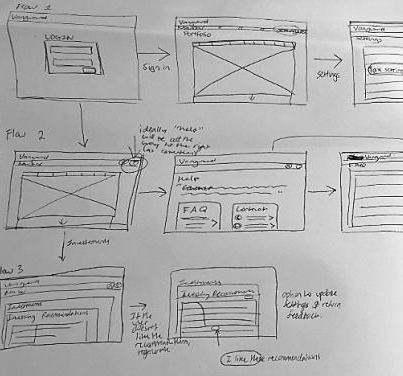 Flow 1
Vanguard
LOGIN
Sign in
Vanguard
Portfolio
settings
Vanguard
Settings
Flow 2
ideally "Help"
will be all the
way to the right
Vanguard
Vanguard
Help
FAQ
Contact
Vanguard
FAQ
Investments
Flow 3
Vanguard
Investments
Investing Recommendations
If the
user
doesn't
like the
recommendations,
Investments
Investing Recommendations
option to update
settings & return
feedback.
I like these recommendations